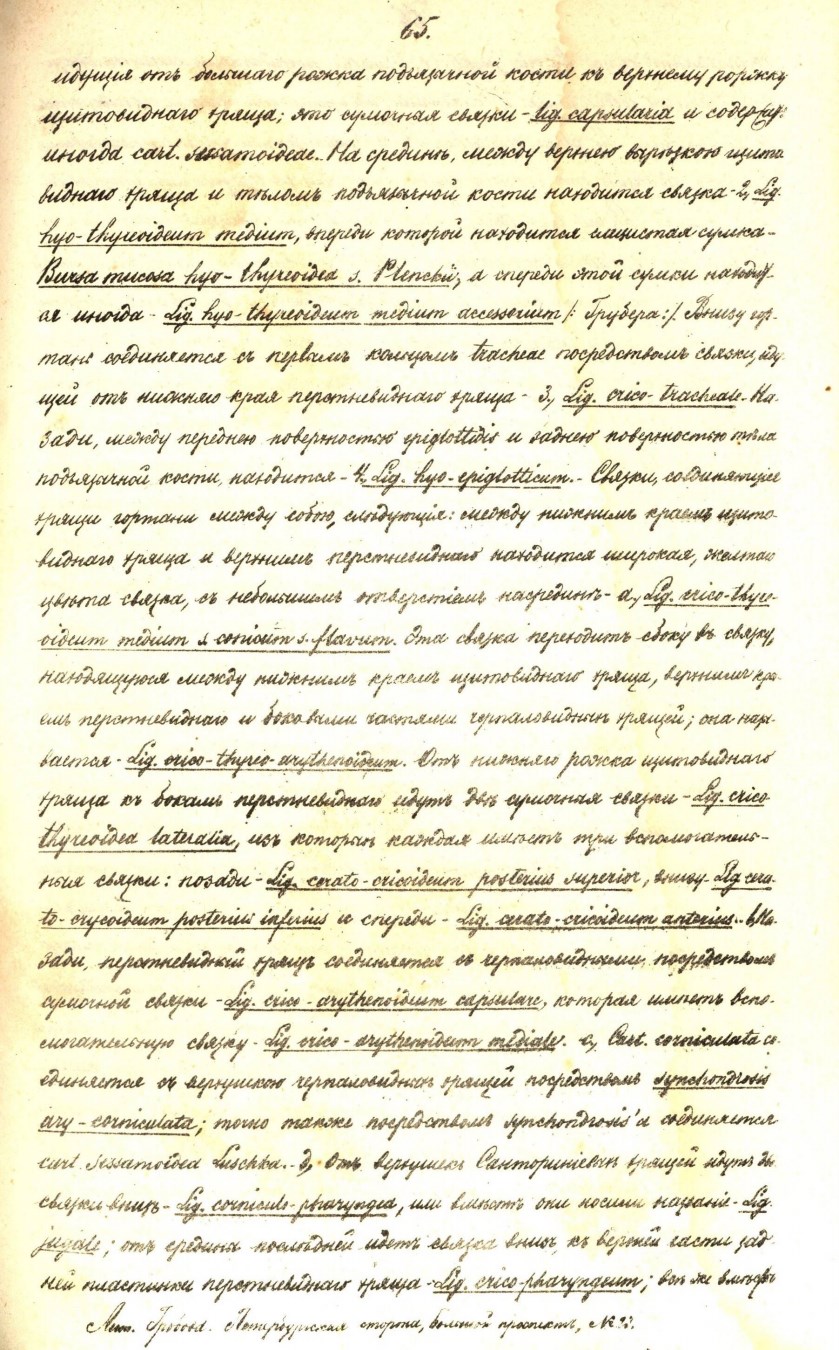 65.
идущія отъ большаго рожка подъязычной кости къ верхнему рожку
щитовиднаго хряща; это сумочная связки - lig. capsularia и содержутъ
иногда cart. sessamoideae. На срединѣ, между верхнею вырѣзкою щито
виднаго хряща и тѣломъ подъязычной кости находится связка - 2, Lig.
hyo-thyreoideum medium, впереди которой находится слизистая сумка -
Bursa mucosa hyo-thyreoidea s. , а спереди этой сумки находит-
ся иногда - Lig. hyo-thyreoideum medium accessorium /: Грубера :/. Внизу гор-
тань соединяется съ первымъ кольцомъ tracheae посредствомъ связки, иду
щей отъ нижняго края перстневиднаго хряща - 3, Lig. crico-tracheale. На-
зади, между переднею поверхностью epiglottidis и заднею поверхностью тѣла
подъязычной кости, находится - 4, Lig. hyo-epiglotticum. - Связки, соединяющіе
хрящи гортани между собою, слѣдующія: между нижнимъ краемъ щито-
виднаго хряща и верхнимъ перстневиднаго находится широкая, желтаго
цвѣта связка, съ небольшимъ отверстіемъ насрединѣ - a, Lig. crico-thyre-
oideum medium s. conicum s. flavum. Эта связка переходитъ сбоку въ связку,
находящуюся между нижнимъ краемъ щитовиднаго хряща, верхнимъ кра-
емъ перстневиднаго и боковыми частями черпаловидныхъ хрящей; она назы-
вается - Lig. crico-thyreo-arythenoideum. Отъ нижняго рожка щитовиднаго
хряща къ бокамъ перстневиднаго идутъ двѣ сумочныя связки - Lig. crico
thyreoidea lateralia, изъ которыхъ каждая имѣетъ три вспомогатель-
ныя связки: позади - Lig. cerato-cricoideum posterius superior, внизу - Lig. cera-
to-crycoideum posterius inferius и спереди - Lig. cerato-cricoideum anterius. - b, На-
зади, перстневидный хрящъ соединяется съ черпаловидными, посредствомъ
сумочной связки - Lig. crico-arythenoideum capsulare, которая имѣетъ вспо-
могательную связку - Lig. crico-arythenoideum mediale. c, Cart. corniculata со-
единяется съ верхушкою черпаловидныхъ хрящей посредствомъ synchondrosis
ary-corniculata; точно также посредствомъ synchondrosis'а соединяется
cart. sessamoidea Luschka. - d, Отъ верхушекъ Санториніевыхъ хрящей идутъ двѣ
связки внизъ - Lig. corniculo-pharyngea, или вмѣстѣ они носили названіе - Lig.
jugale; отъ средины послѣдней идетъ связка внизъ, къ верхней части зад-
ней пластинки перстневиднаго хряща - Lig. crico-pharyngeum; всѣ же вмѣстѣ
Лит. Гробова. Петербургская сторона, большой проспектъ, №